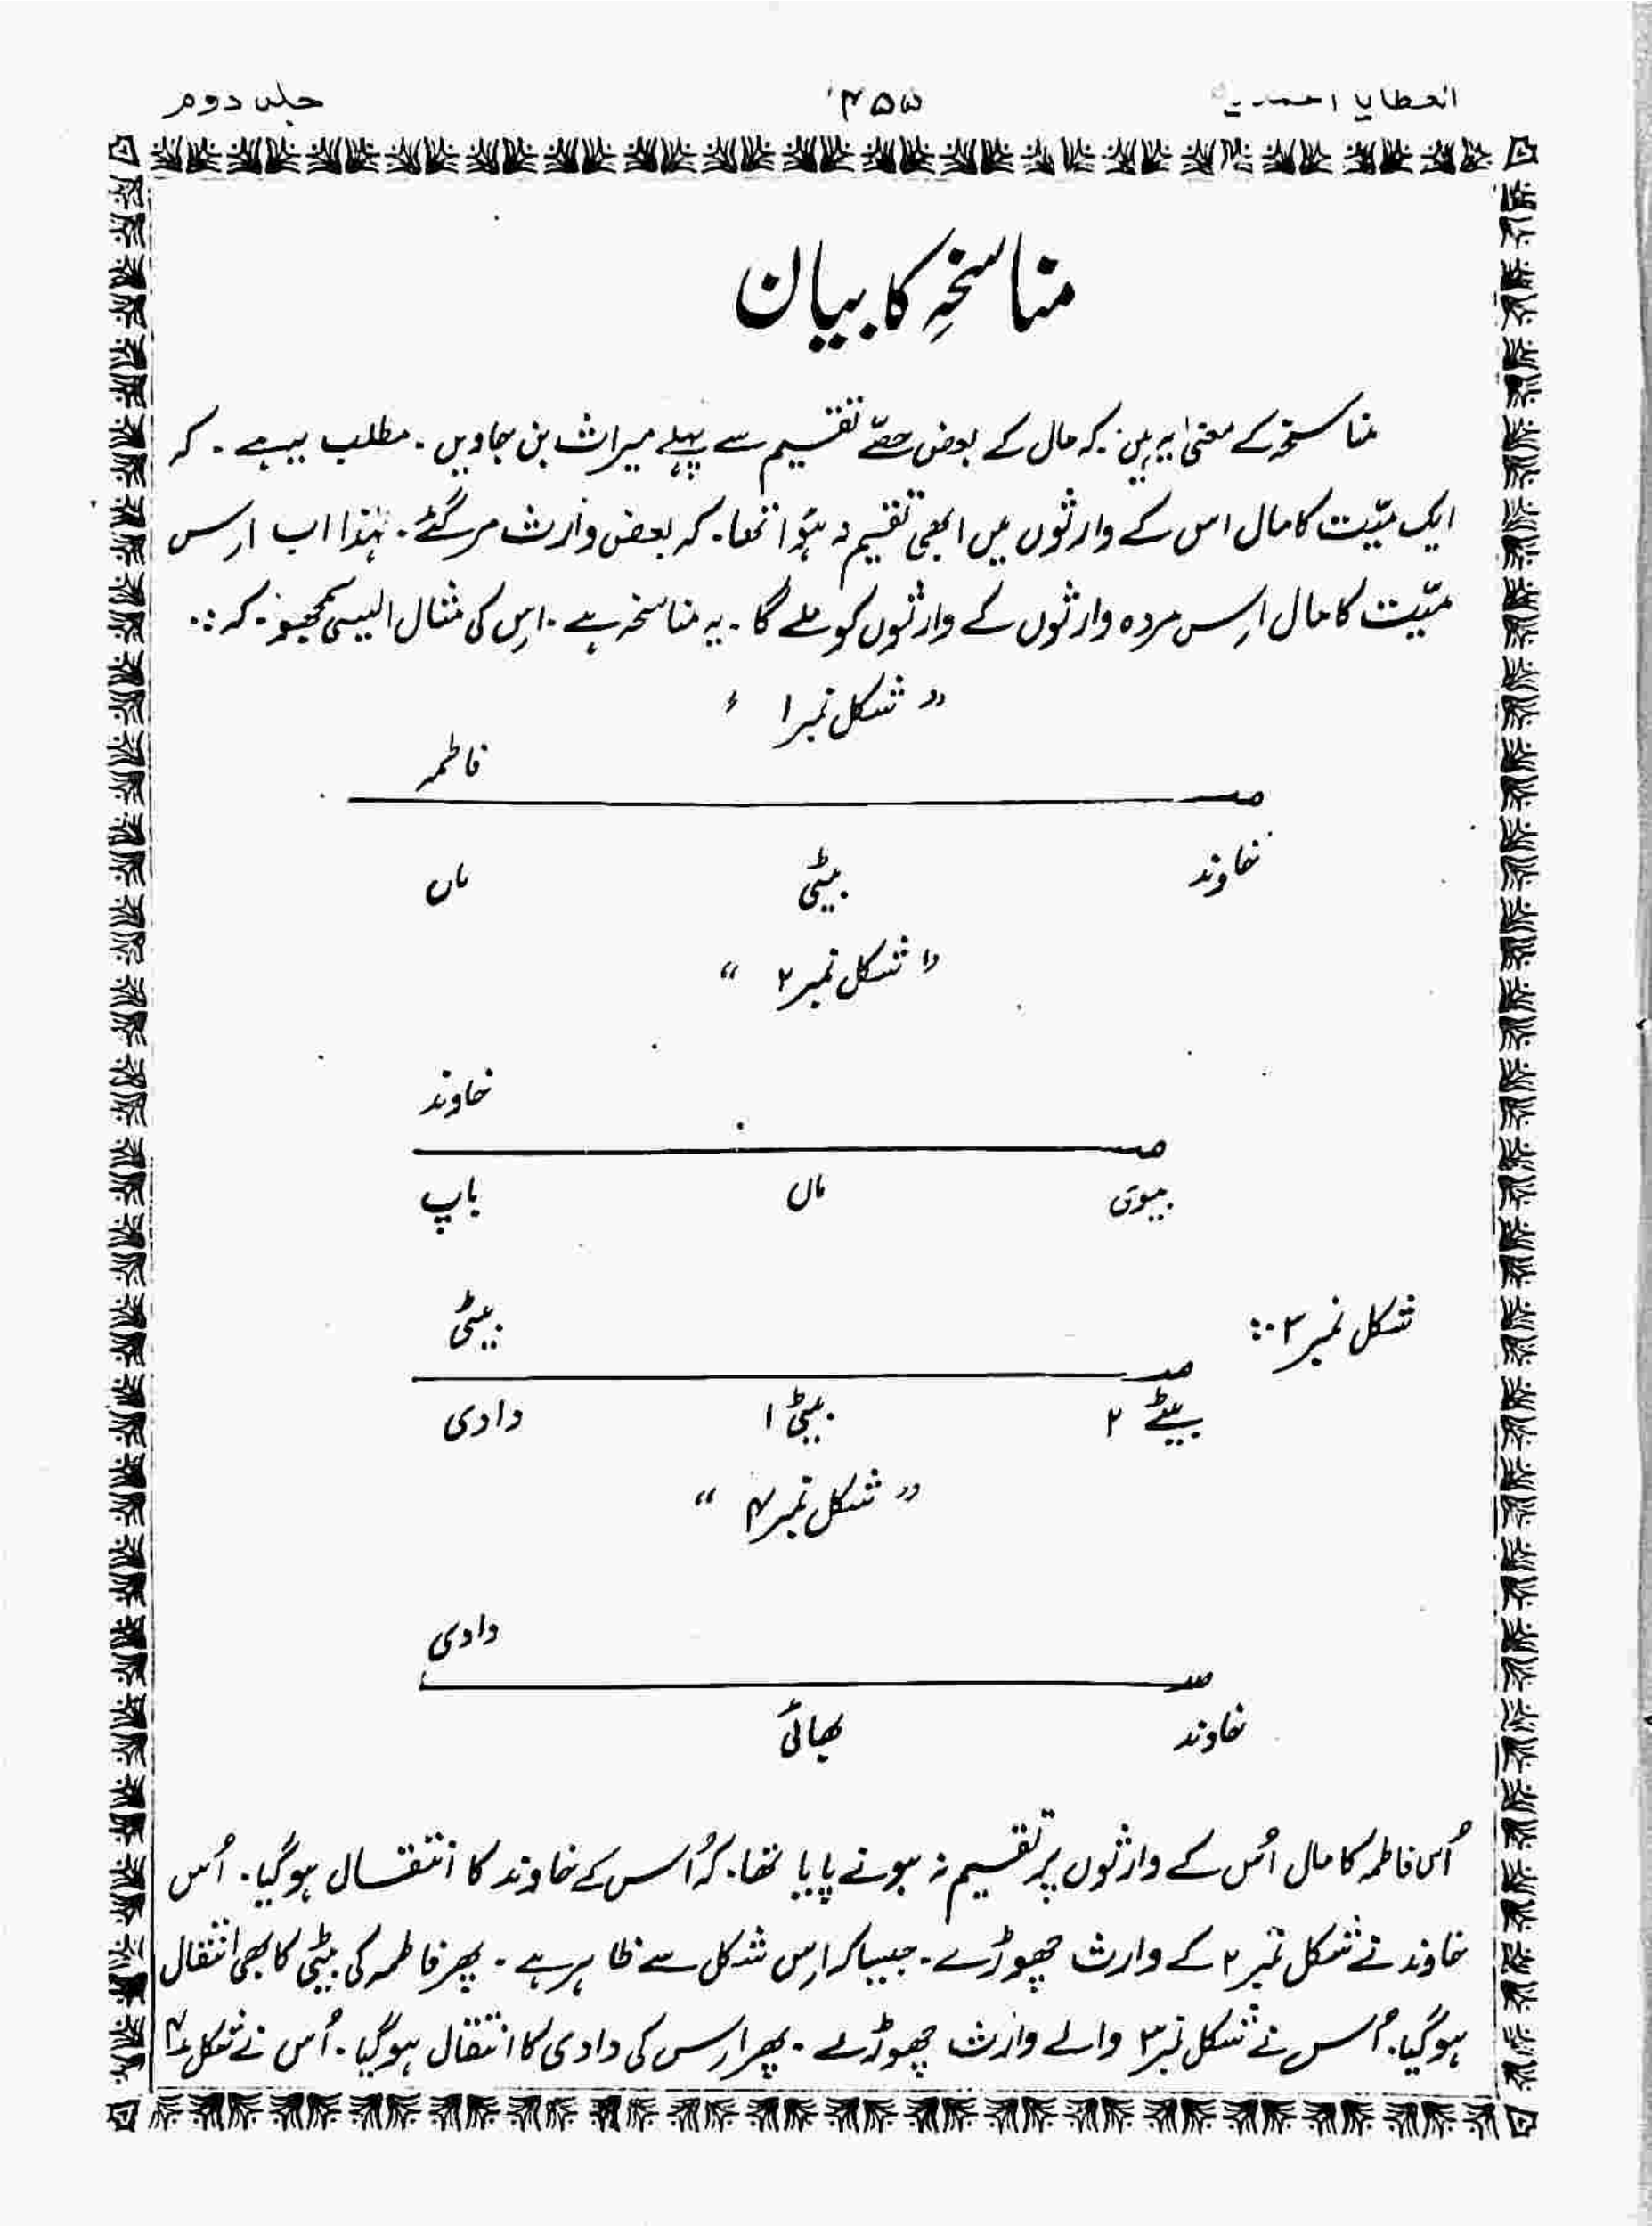 العطایا احمدیہ
۴۵۵
جلد دوم
مناسخہ کا بیان
مناسخہ کے معنیٰ یہ ہیں: کہ مال کے بعض حصّے تقسیم سے پہلے میراث بن جاویں۔ مطلب یہ ہے۔ کہ
ایک میّت کا مال اس کے وارثوں میں ابھی تقسیم نہ ہؤا تھا۔ کہ بعض وارث مر گئے۔ لہٰذا اب اِس
میّت کا مال اِس مردہ وارثوں کے وارثوں کو ملے گا۔ یہ مناسخہ ہے۔ اِس کی مثال ایسی سمجھیو۔ کہ:۔
” شکل نمبر ۱ ء
فاطمہ
مـــــــــ
خاوند بیٹی ماں
” شکل نمبر ۲ “
خاوند
مـــــــــ
بیوی ماں باپ
شکل نمبر ۳:۔
بیٹی
مـــــــــ
بیٹے ۲ بیٹی ۱ دادی
” شکل نمبر ۴ “
دادی
مـــــــــ
خاوند بھائی
اُس فاطمہ کا مال اُس کے وارثوں پر تقسیم نہ ہونے پایا تھا۔ کہ اُس کے خاوند کا انتقال ہو گیا۔ اُس
خاوند نے شکل نمبر ۲ کے وارث چھوڑے۔ جیسا کہ اِس شکل سے ظاہر ہے۔ پھر فاطمہ کی بیٹی کا بھی انتقال
ہو گیا۔ اُس نے شکل نمبر ۳ والے وارث چھوڑے۔ پھر اِس کی دادی کا انتقال ہو گیا۔ اُس نے شکل ۴